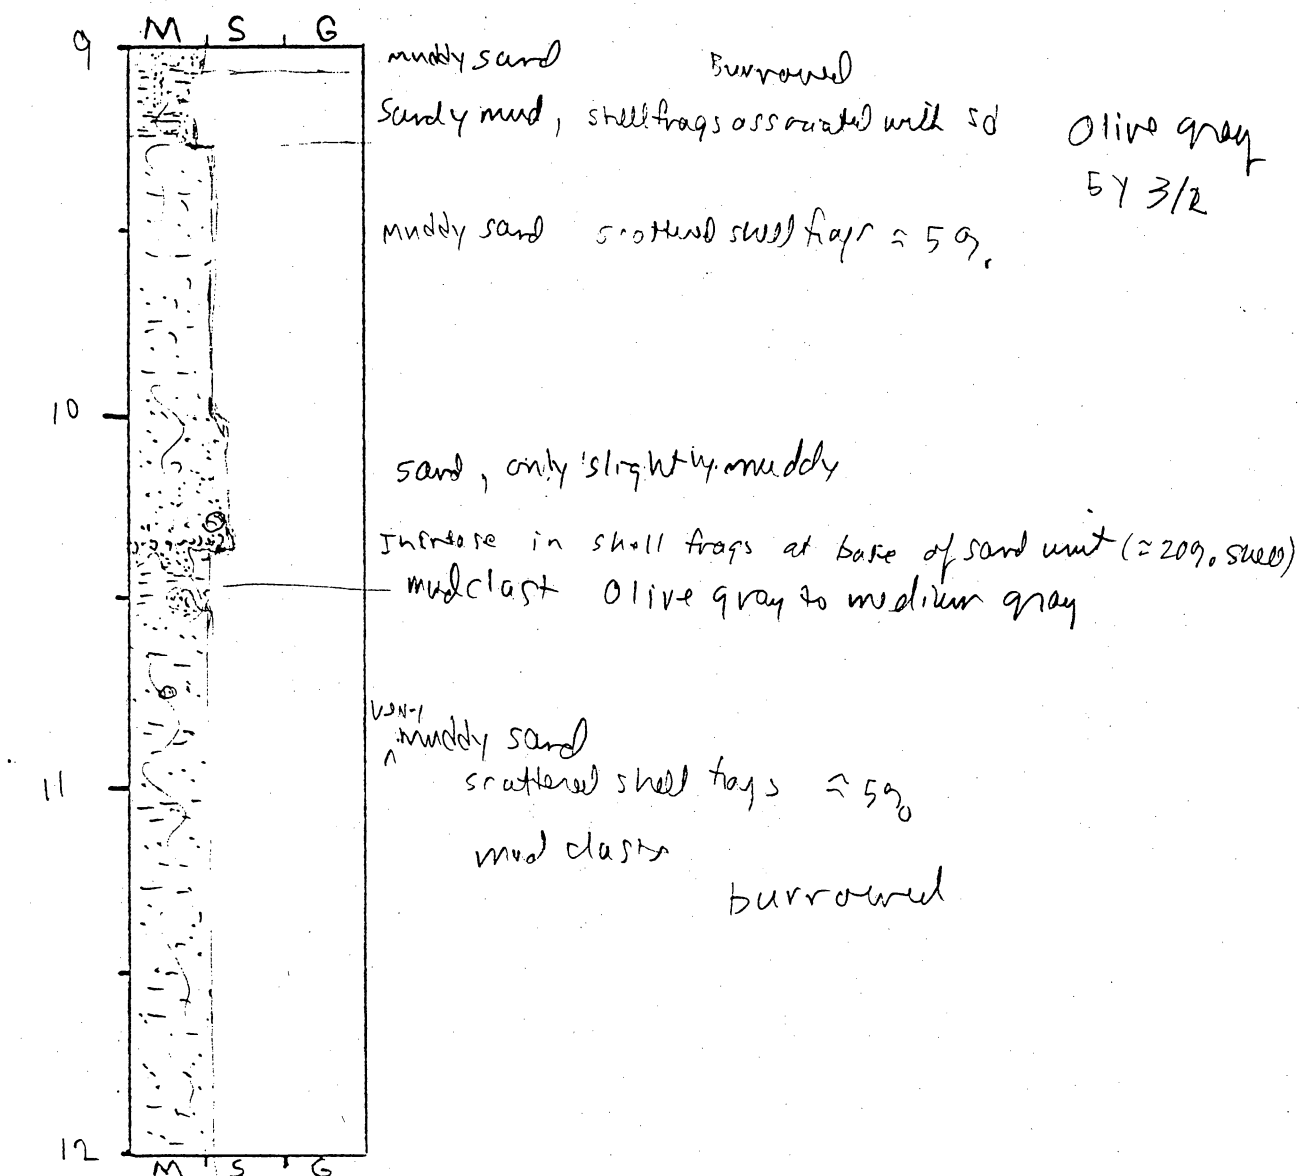 M S G
9
muddy sand Burrowed
Sandy mud, shell frags associated with sd
Olive gray
5Y 3/2
muddy sand scattered shell frags ≈ 5%
10
sand, only slightly muddy
Increase in shell frags at base of sand unit (≈20% shell)
mud clast Olive gray to medium gray
very
muddy sand
11
scattered shell frags ≈ 5%
mud clasts
burrowed
12
M S G